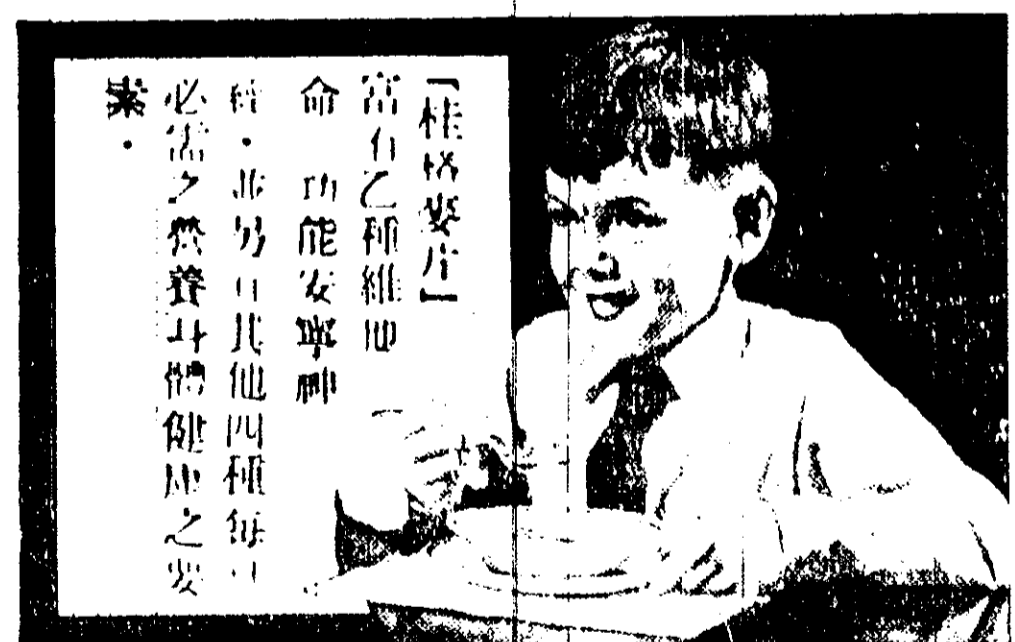 「桂格麥片」
富有乙種維他
命 功能安寧神
經・並另有其他四種每日
必需之營養身體健康之要
素・